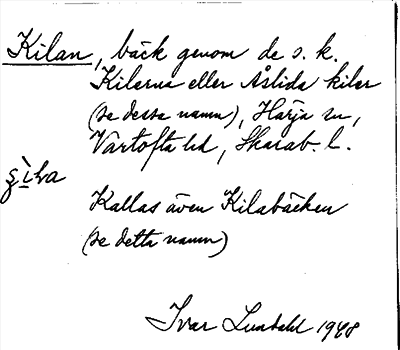 Kilan, bäck genom de s. k.
Kilarna eller Åslida kilar
(se dessa namn), Härja sn,
Vartofta hd, Skarab. l.
Kallas även Kilabäcken
(se detta namn)
Ivar Lundahl 1948